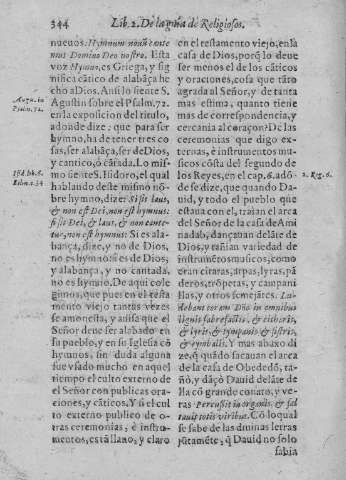 344 Lib. 2. De la guia de Religiosos.
nueuos. Hymnum nouũ cante
mus Domino Deo nostro. Esta
voz Hymnus, es Griega, y sig
nifica cãtico de alabãça he
cho aDios. Ansi lo siente S.
Augu. in
Psalm. 72.
Agustin sobre el Psalm. 72.
en la exposicion del titulo,
adonde dize: que para ser
hymno, ha de tener tres co
sas, ser alabãça, ser de Dios,
y cantico, ò cãtada. Lo mis
mo siente S. Isidoro, el qual
hablando deste mismo nõ
bre hymno, dizer Si sit laus,
& non est Dei, non est hymnus:
si Dei, & laus, & non cante-
tur, non est hymnus: Si es ala-
bança, dize, y no de Dios,
no es hymno: si es de Dios,
y alabança, y no cantada,
no es hymno. De aqui cole
gimos, que pues en el testa
mento viejo tantas vezes
se amonesta, y auisa que el
Señor deue ser alabado en
su pueblo, y en su Iglesia cõ
hymnos, sin duda alguna
fue vsado mucho en aquel
tiempo el culto externo de
el Señor con publicas ora-
ciones, y cãticos. Y si el cul
to externo publico de o-
tras ceremonias, è instru-
mentos, està llano, y claro
en el testamento viejo, en la
casa de Dios, porq̃ lo deue
ser menos el de los cãticos
y oraciones, cosa que tãto
agrada al Señor, y de tanta
mas estima, quanto tiene
mas de correspondencia, y
cercania al coraçon? De las
ceremonias que digo ex-
ternas, è instrumentos mu-
sicos cõsta del segundo de
los Reyes, en el cap. 6. adõ
2. Reg. 6.
de se dize, que quando Da-
uid, y todo el pueblo que
estaua con el, traian el arca
del Señor de la casa de Ami
nadab, dançauan delãte de
Dios, y tañian variedad de
instrumẽtos musicos, como
eran citaras, arpas, lyras, pã
deros, trõpetas, y campani
llas, y otros semejãtes. Lu-
debant coram Dño in omnibus
lignis fabrefactis, & citharis,
& lyris, & tympanis, & sistris,
& cymbalis. Y mas abaxo di
ze, q̃ quãdo sacauan el arca
de la casa de Obededõ, ta-
ñò, y dãçò Dauid delãte de
lla cõ grande conato, y ve-
ras Percussit in organis, & sal
tauit totis viribus. Cõ lo qual
se sabe de las diuinas letras
jũtamẽte, q̃ Dauid no solo
sabia